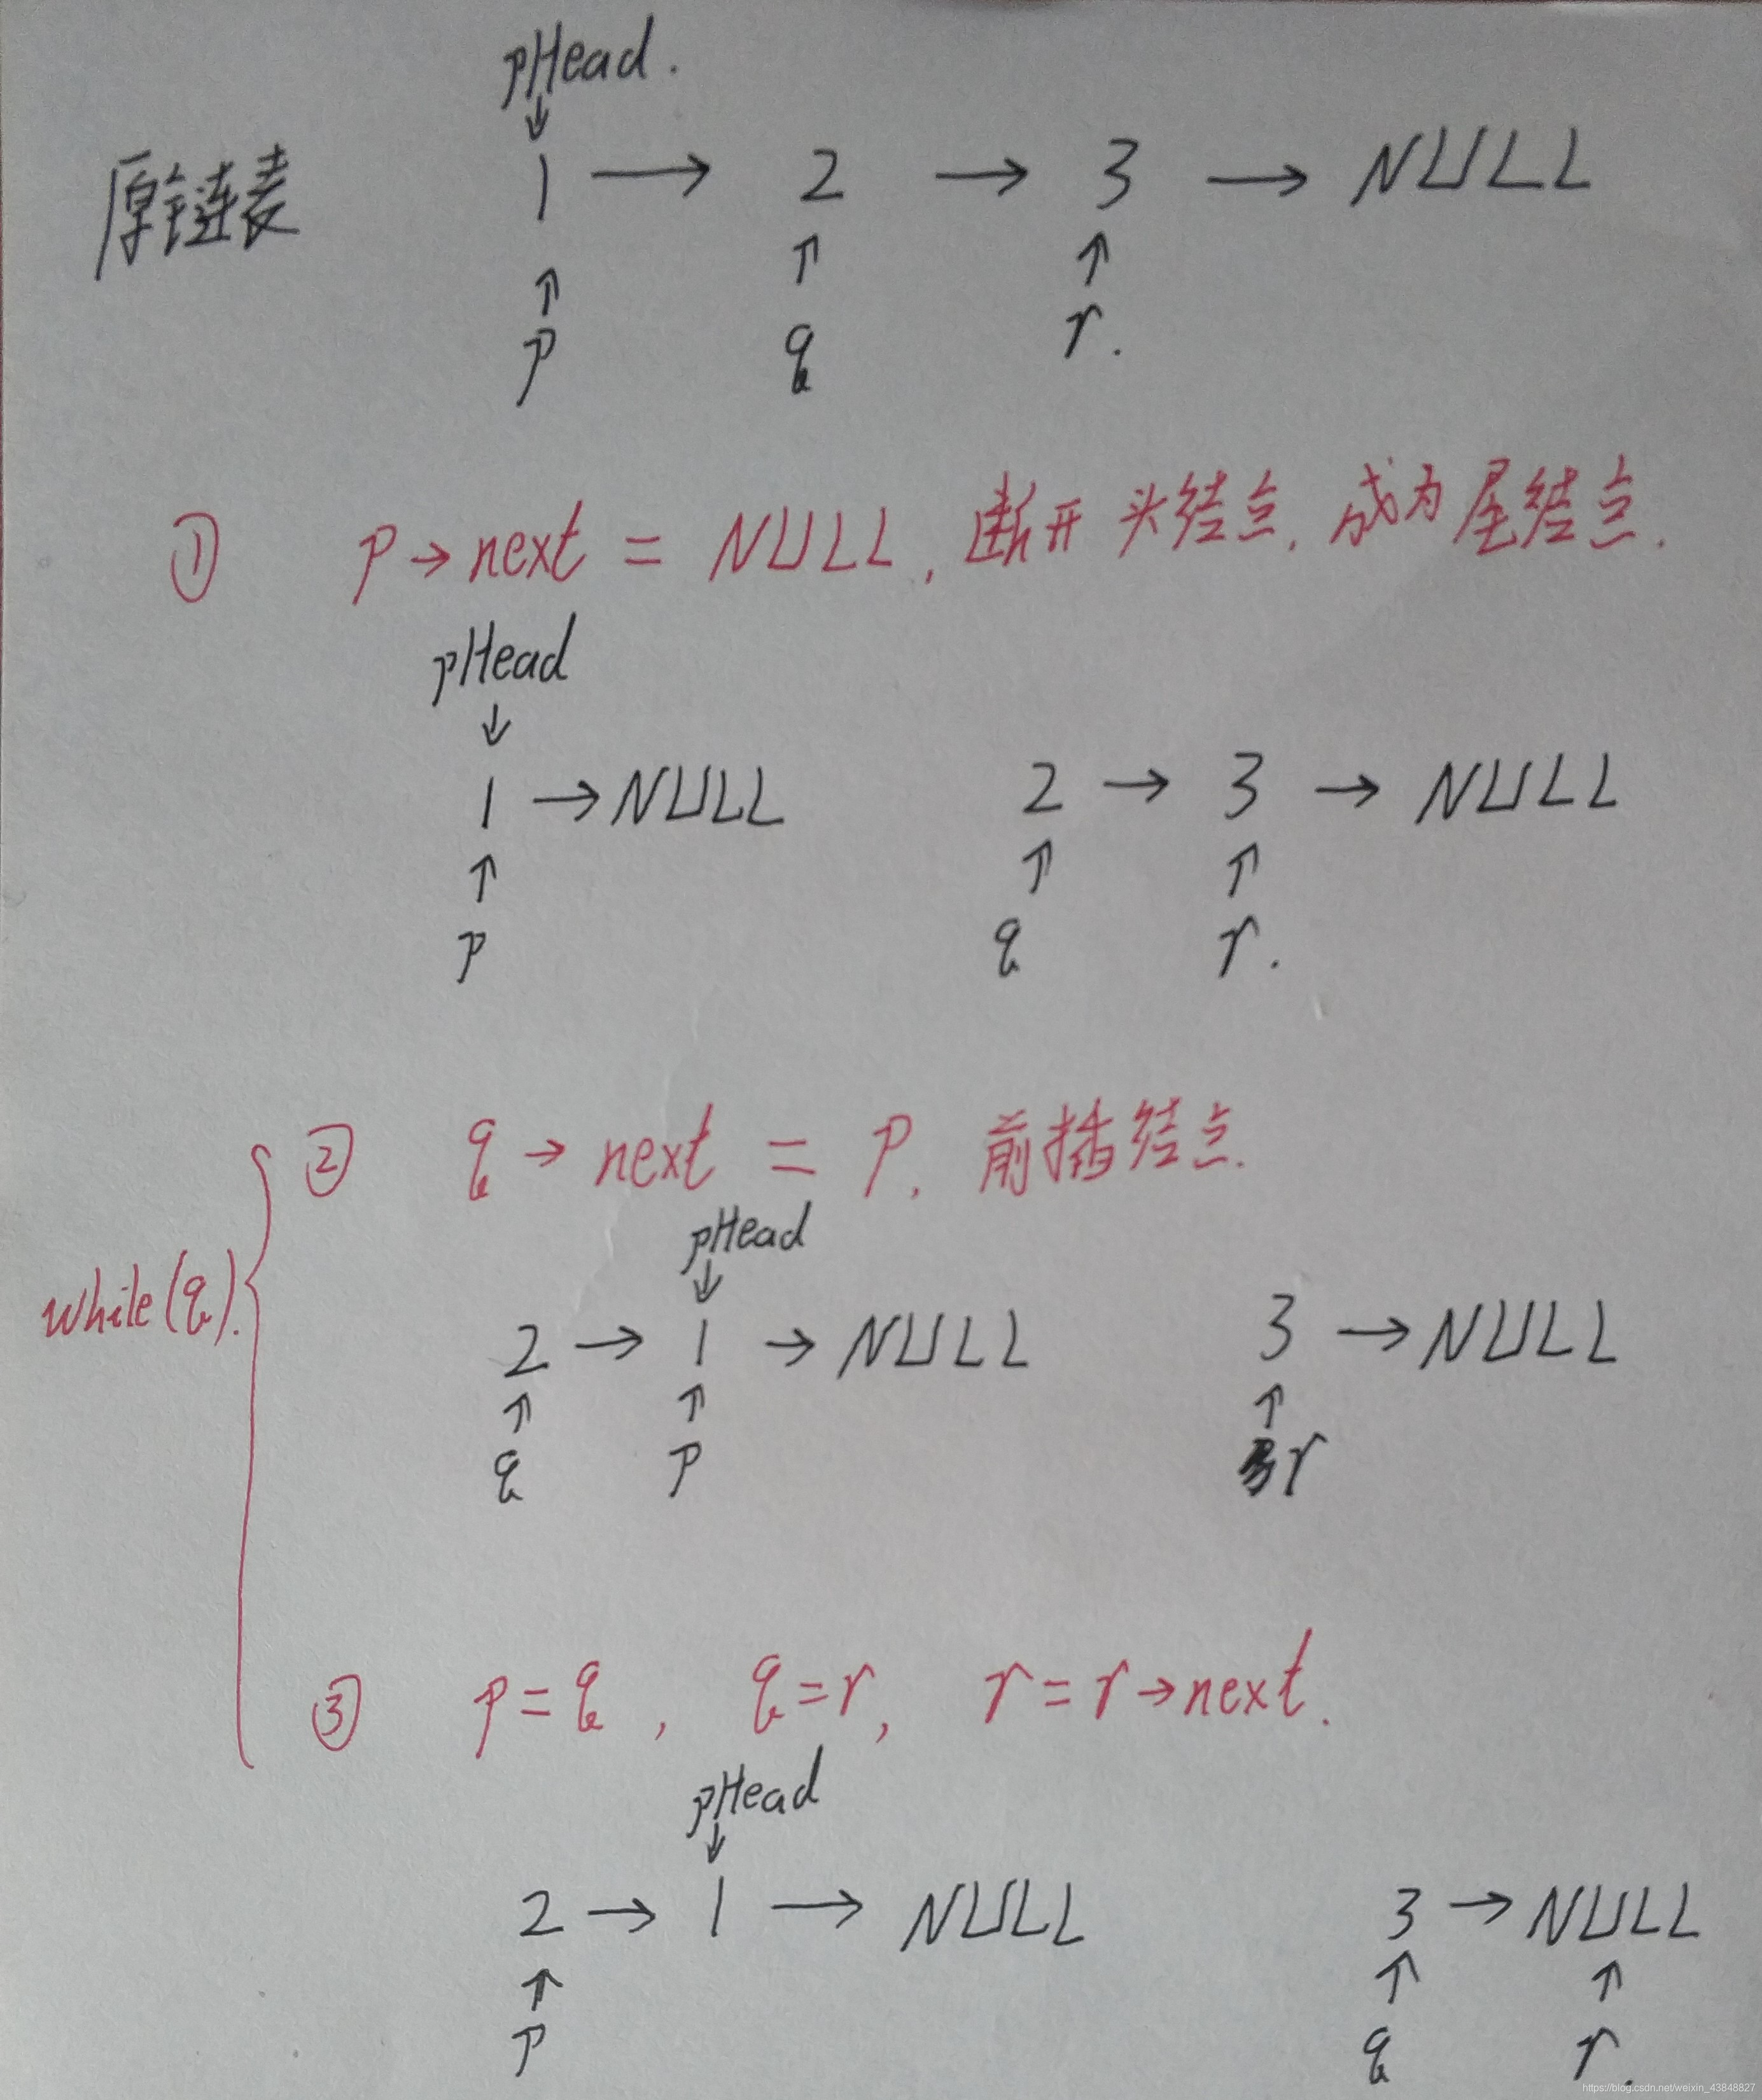 pHead.
↓
原链表 1 → 2 → 3 → NULL
↑ ↑ ↑
p q r.
① p→next = NULL, 断开头结点, 成为尾结点.
pHead
↓
1 → NULL 2 → 3 → NULL
↑ ↑ ↑
p q r.
② q→next = p, 前插结点.
pHead
↓
while(q).
2 → 1 → NULL 3 → NULL
↑ ↑ ↑
q p r
③ p=q, q=r, r=r→next.
pHead
↓
2 → 1 → NULL 3 → NULL
↑ ↑ ↑
p q r.
https://blog.csdn.net/weixin_43848827